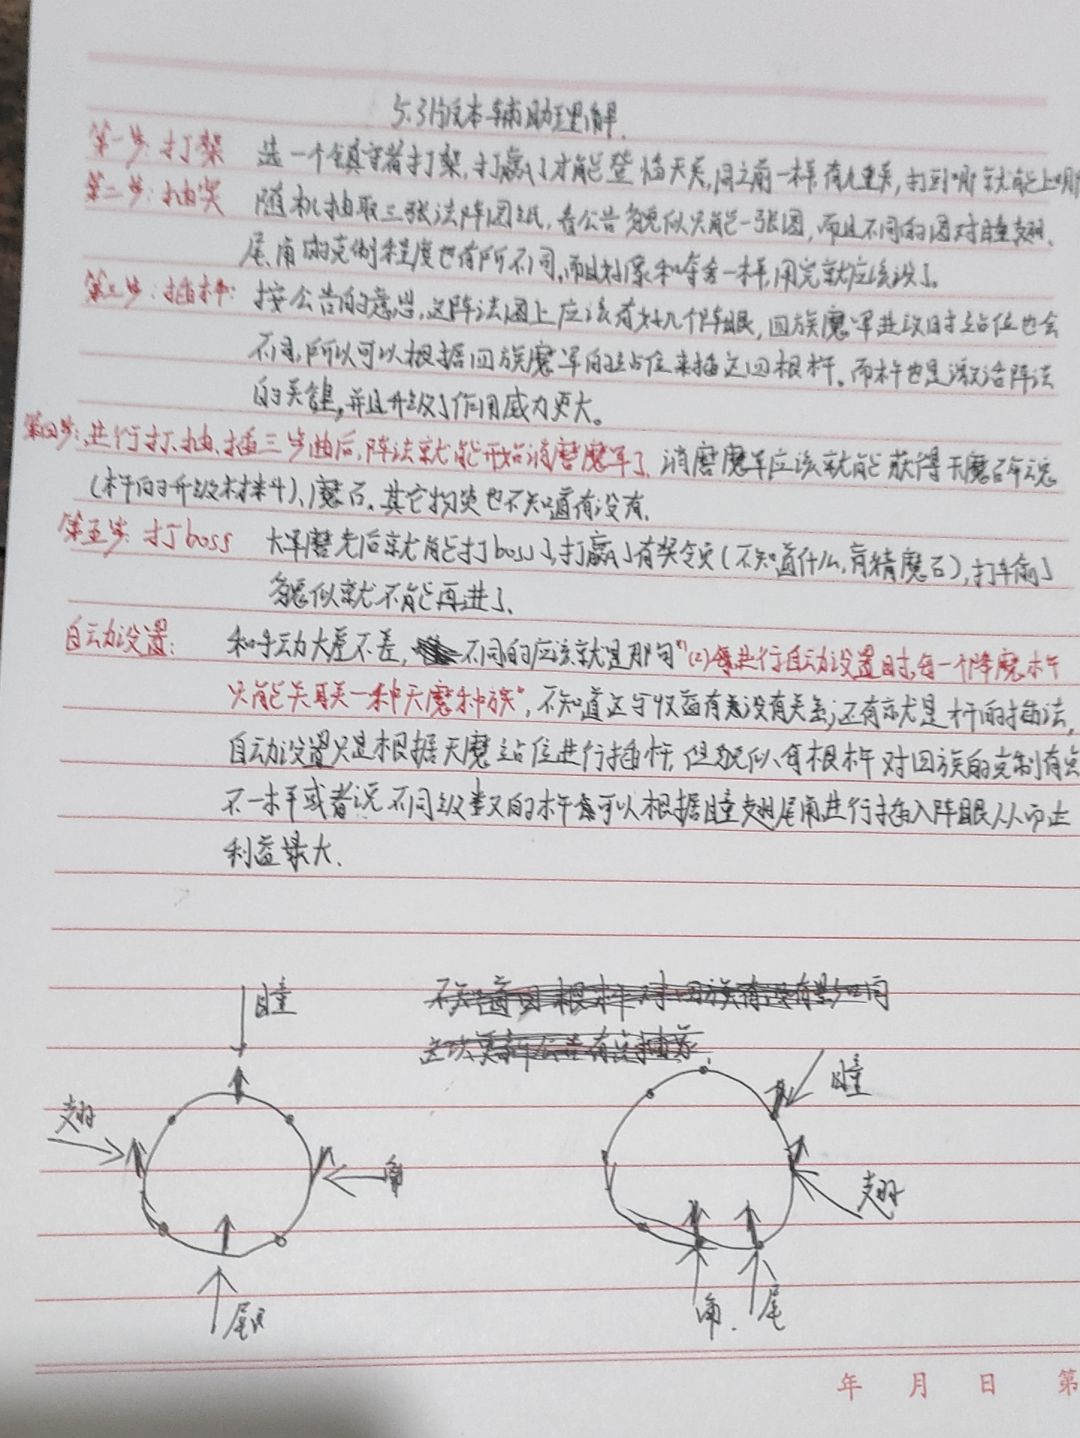 5.31版本辅助理解
第一步:打架 选一个镇守者打架,打赢了才能登临天关,同之前一样有九重关,打到哪就能上哪
第二步:抽奖 随机抽取三张法阵图纸,看公告貌似只能一张图,而且不同的图对瞳翅、
尾、角的克制程度也有所不同,而且好像和夺舍一样,用完就应该没了。
第三步:插杵: 按公告的意思,这阵法图上应该有好几个阵眼,四族魔军进攻时站位也会
不同,所以可以根据四族魔军的站位来插这四根杵。而杵也是激活阵法
的关键,并且升级了作用威力更大。
第四步:进行打、抽、插三步曲后,阵法就能开始消磨魔军了,消磨魔军应该就能获得天魔碎魂
(杵的升级材料)、魔石。其它物资也不知道有没有。
第五步:打boss 大军磨光后就能打boss了,打赢了有奖领(不知道什么,有精魔石),打车翻了
貌似就不能再进了。
自动设置: 和手动大差不差, 不同的应该就是那句"(2)每进行自动设置时,每一个降魔杵
只能关联一种天魔种族",不知道这与收益有没有关系;还有就是杵的插法,
自动设置只是根据天魔站位进行插杵,但貌似每根杵对四族的克制有点
不一样或者说不同级数的杵可以根据瞳翅尾角进行插入阵眼从而达
利益最大.
瞳
翅
角
尾
瞳
翅
角. 尾
年 月 日 第